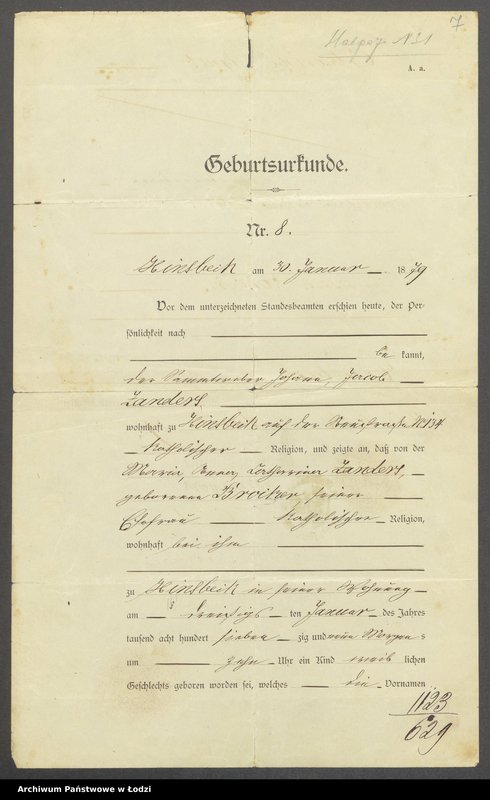 7
No 31
A. a.
Geburtsurkunde.
Nr. 8.
Hinsbeck am 30. Januar 1879
Vor dem unterzeichneten Standesbeamten erschien heute, der Per-
sönlichkeit nach
be kannt,
der Sammtweber Johann, Jacob
Zanders
wohnhaft zu Hinsbeck auf der No 134
katholischer Religion, und zeigte an, daß von der
Maria, Anna, Catharina Zanders,
geborenen seiner
Ehefrau katholischer Religion,
wohnhaft bei ihm
zu Hinsbeck in seiner Wohnung
am dreißigs ten Januar des Jahres
tausend acht hundert sieben zig und neun Morgen s
um zehn Uhr ein Kind weib lichen
Geschlechts geboren worden sei, welches die Vornamen
1123
629
Archiwum Państwowe w Łodzi